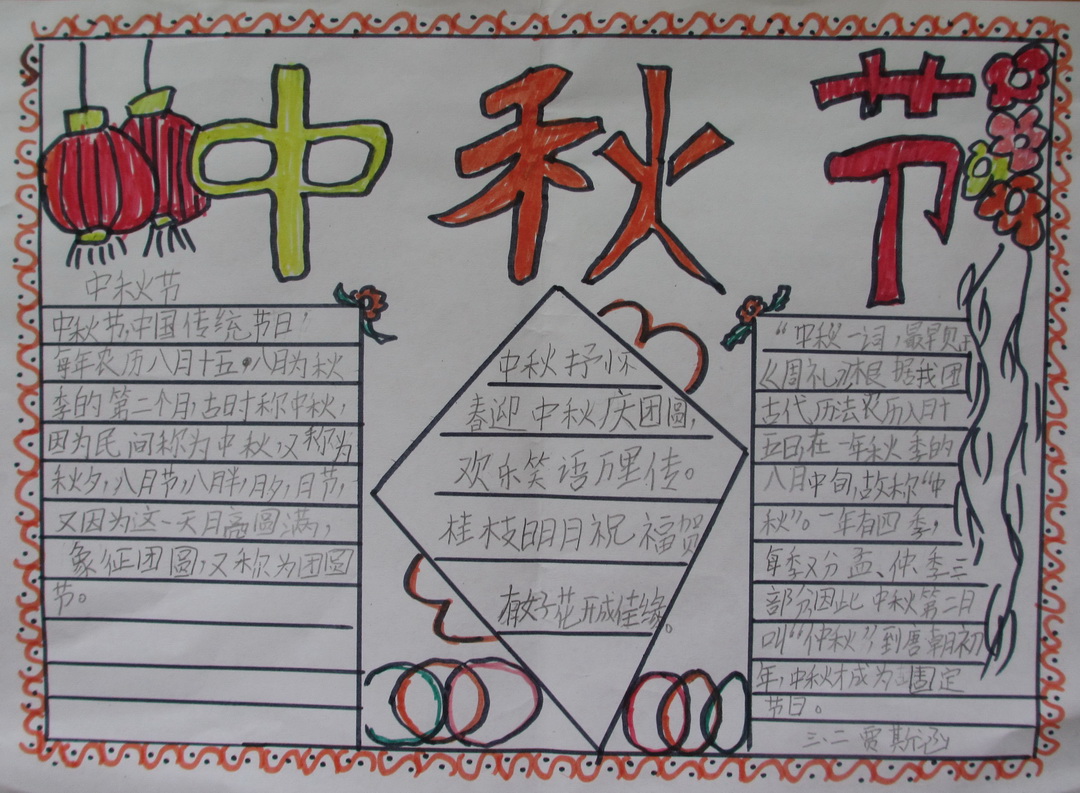 中秋节
中秋节
中秋节,中国传统节日!
每年农历八月十五,八月为秋
季的第二个月,古时称中秋,
因为民间称为中秋,又称为
秋夕,八月节,八月半,月夕,月节,
又因为这一天月亮圆满,
象征团圆,又称为团圆
节。
中秋抒怀
春迎中秋庆团圆,
欢乐笑语万里传。
桂枝明月祝福贺
有好花开成佳缘。
“中秋一词,最早见于
《周礼》根据我国
古代历法农历八月十
五日在一年秋季的
八月中旬,故称“中
秋”。一年有四季,
每季又分孟、仲、季三
部分因此中秋第二月
叫“仲秋”,到唐朝初
年,中秋才成为固定
节日。
三、二 贾斯涵